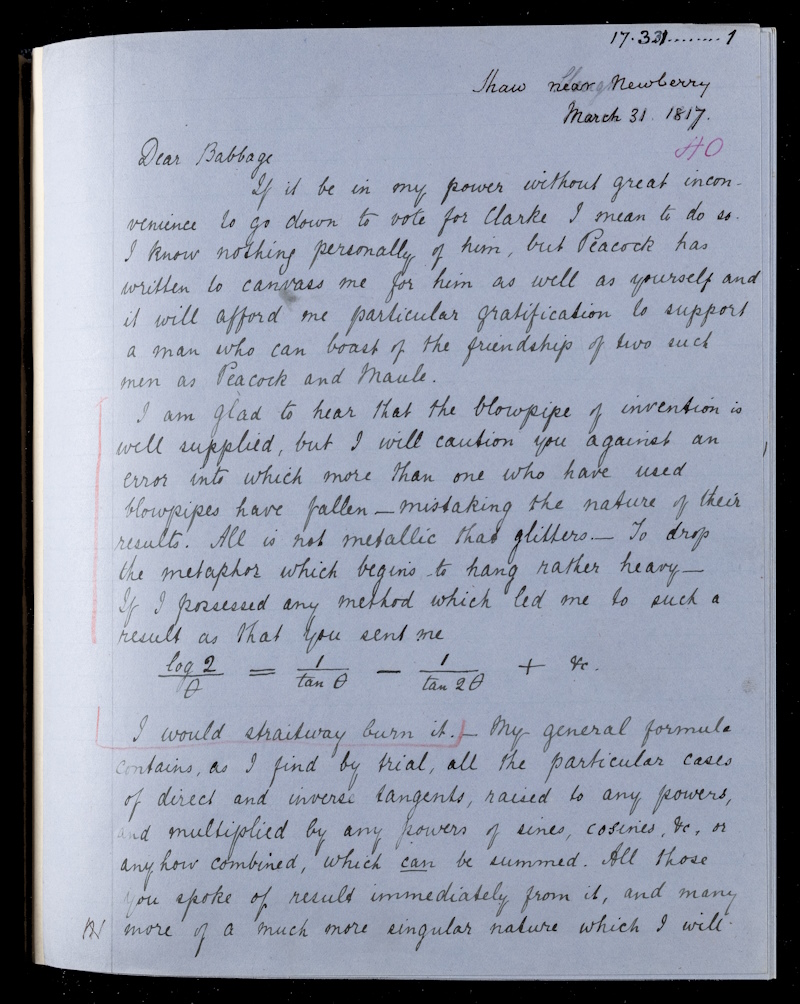 17.331.........1
Shaw near Newberry
March 31. 1817.
40
Dear Babbage
If it be in my power without great incon-
venience to go down to vote for Clarke I mean to do so.
I know nothing personally of him, but Peacock has
written to canvass me for him as well as yourself and
it will afford me particular gratification to support
a man who can boast of the friendship of two such
men as Peacock and Maule.
I am glad to hear that the blowpipe of invention is
well supplied, but I will caution you against an
error into which more than one who have used
blowpipes have fallen — mistaking the nature of their
results. All is not metallic that glitters. — To drop
the metaphor which begins to hang rather heavy —
If I possessed any method which led me to such a
result as that you sent me
log 2 / θ = 1 / tan θ − 1 / tan 2θ + &c.
I would straitway burn it. — My general formula
contains, as I find by trial, all the particular cases
of direct and inverse tangents, raised to any powers,
and multiplied by any powers of sines, cosines, &c, or
anyhow combined, which can be summed. All those
you spoke of result immediately from it, and many
more of a much more singular nature which I will